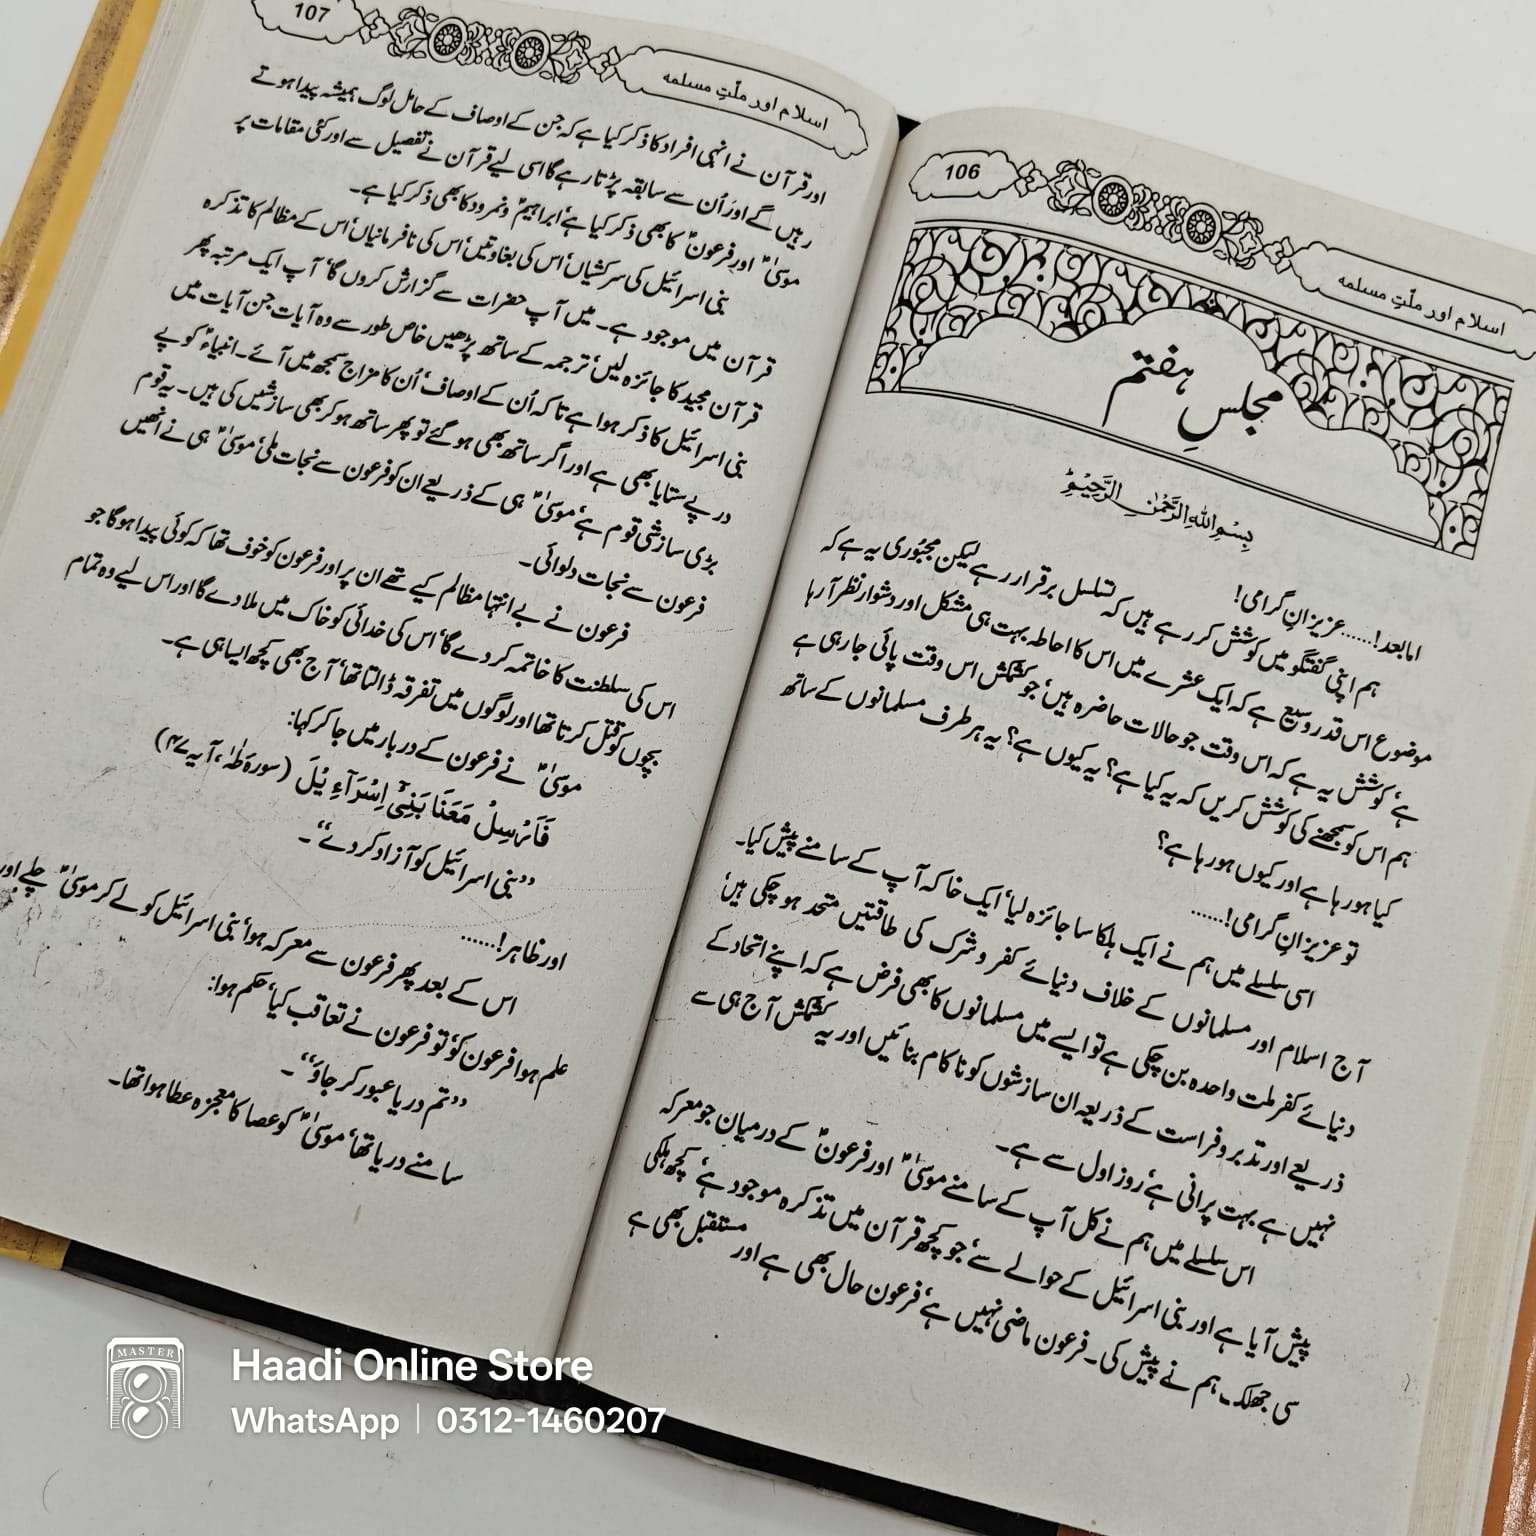 اسلام اور ملّتِ مسلمہ
106
مجلسِ ہفتم
بِسْمِ اللّٰہِ الرَّحْمٰنِ الرَّحِیْمِ
امابعد!......عزیزانِ گرامی!
ہم اپنی گفتگو میں کوشش کر رہے ہیں کہ تسلسل برقرار رہے لیکن مجبُوری یہ ہے کہ
موضوع اس قدر وسیع ہے کہ ایک عشرے میں اس کا احاطہ بہت ہی مشکل اور دشوار نظر آ رہا
ہے‘ کوشش یہ ہے کہ اس وقت جو حالات حاضرہ ہیں‘ جو کشمکش اس وقت پائی جا رہی ہے
ہم اس کو سمجھنے کی کوشش کریں کہ یہ کیا ہے؟ یہ کیوں ہے؟ یہ ہر طرف مسلمانوں کے ساتھ
کیا ہو رہا ہے اور کیوں ہو رہا ہے؟
تو عزیزانِ گرامی!......
اسی سلسلے میں ہم نے ایک ہلکا سا جائزہ لیا‘ ایک خاکہ آپ کے سامنے پیش کیا۔
آج اسلام اور مسلمانوں کے خلاف دنیائے کفر و شرک کی طاقتیں متحد ہو چکی ہیں‘
دنیائے کفر ملت واحدہ بن چکی ہے تو ایسے میں مسلمانوں کا بھی فرض ہے کہ اپنے اتحاد کے
ذریعے اور تدبر و فراست کے ذریعہ ان سازشوں کو ناکام بنائیں اور یہ کشمکش آج ہی سے
نہیں ہے بہت پرانی ہے‘ روز اول سے ہے۔
اس سلسلے میں ہم نے کل آپ کے سامنے موسیٰؑ اور فرعونؑ کے درمیان جو معرکہ
پیش آیا ہے اور بنی اسرائیل کے حوالے سے‘ جو کچھ قرآن میں تذکرہ موجود ہے‘ کچھ ہلکی
سی جھلک۔ ہم نے پیش کی۔ فرعون ماضی نہیں ہے‘ فرعون حال بھی ہے اور مستقبل بھی ہے
اسلام اور ملّتِ مسلمہ
107
اور قرآن نے انہی افراد کا ذکر کیا ہے کہ جن کے اوصاف کے حامل لوگ ہمیشہ پیدا ہوتے
رہیں گے اور اُن سے سابقہ پڑتا رہے گا اسی لیے قرآن نے تفصیل سے اور کئی مقامات پر
موسیٰؑ اور فرعونؑ کا بھی ذکر کیا ہے‘ ابراہیمؑ ونمرود کا بھی ذکر کیا ہے۔
بنی اسرائیل کی سرکشیاں‘ اس کی بغاوتیں‘ اس کی نافرمانیاں‘ اس کے مظالم کا تذکرہ
قرآن میں موجود ہے۔ میں آپ حضرات سے گزارش کروں گا‘ آپ ایک مرتبہ پھر
قرآن مجید کا جائزہ لیں‘ ترجمہ کے ساتھ پڑھیں خاص طور سے وہ آیات جن آیات میں
بنی اسرائیل کا ذکر ہوا ہے تاکہ اُن کے اوصاف‘ اُن کا مزاج سمجھ میں آئے۔ انبیاءؑ کو پے
در پے ستایا بھی ہے اور اگر ساتھ بھی ہو گئے تو پھر ساتھ ہو کر بھی سازشیں کی ہیں۔ یہ قوم
بڑی سازشی قوم ہے‘ موسیٰؑ ہی کے ذریعے ان کو فرعون سے نجات ملی‘ موسیٰؑ ہی نے انھیں
فرعون سے نجات دلوائی۔
فرعون نے بے انتہا مظالم کیے تھے ان پر اور فرعون کو خوف تھا کہ کوئی پیدا ہو گا جو
اس کی سلطنت کا خاتمہ کر دے گا‘ اس کی خدائی کو خاک میں ملا دے گا اور اس لیے وہ تمام
بچوں کو قتل کرتا تھا اور لوگوں میں تفرقہ ڈالتا تھا‘ آج بھی کچھ ایسا ہی ہے۔
موسیٰؑ نے فرعون کے دربار میں جا کر کہا:
فَاَرْسِلْ مَعَنَا بَنِیْٓ اِسْرَآءِیْلَ (سورہ طٰہٰ‘ آیہ ۴۷)
’’بنی اسرائیل کو آزاد کر دے‘‘۔
اور ظاہر!......
اس کے بعد پھر فرعون سے معرکہ ہوا‘ بنی اسرائیل کو لے کر موسیٰؑ چلے اور
علم ہوا فرعون کو‘ تو فرعون نے تعاقب کیا‘ حکم ہوا:
’’تم دریا عبور کر جاؤ‘‘۔
سامنے دریا تھا‘ موسیٰؑ کو عصا کا معجزہ عطا ہوا تھا۔
MASTER
Haadi Online Store
WhatsApp | 0312-1460207